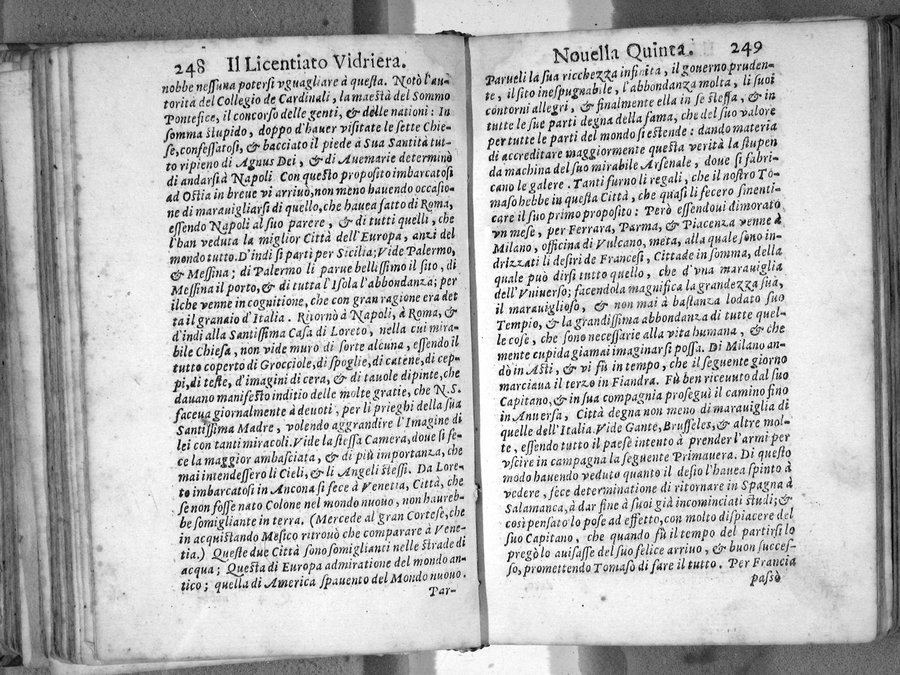 248 Il Licentiato Vidriera.
nobbe nessuna potersi vguagliare à questa. Notò l'au-
torità del Collegio de Cardinali, la maestà del Sommo
Pontefice, il concorso delle genti, & delle nationi: In
somma stupido, doppo d'hauer visitate le sette Chie-
se, confessatosi, & bacciato il piede à Sua Santità tut-
to ripieno di Agnus Dei, & di Auemarie determinò
di andarsi à Napoli. Con questo proposito imbarcatosi
ad Ostia in breue vi arriuò, non meno hauendo occasio-
ne di marauigliarsi di quello, che hauea fatto di Roma,
essendo Napoli al suo parere, & di tutti quelli, che
l'han veduta la miglior Città dell'Europa, anzi del
mondo tutto. D'indi si parti per Sicilia; Vide Palermo,
& Messina; di Palermo li parue bellissimo il sito, di
Messina il porto, & di tutta l'Isola l'abbondanza; per
ilche venne in cognitione, che con gran ragione era det
ta il granaio d'Italia. Ritornò à Napoli, à Roma, &
d'indi alla Santissima Casa di Loreto, nella cui mira-
bile Chiesa, non vide muro di sorte alcuna, essendo il
tutto coperto di Grocciole, di spoglie, di catene, di cep-
pi, di teste, d'imagini di cera, & di tauole dipinte, che
dauano manifesto inditio delle molte gratie, che N.S.
faceua giornalmente à deuoti, per li prieghi della sua
Santissima Madre, volendo aggrandire l'Imagine di
lei con tanti miracoli. Vide la stessa Camera, doue si fe-
ce la maggior ambasciata, & di più importanza, che
mai intendessero li Cieli, & li Angeli stessi. Da Lore-
to imbarcatosi in Ancona si fece à Venetia, Città, che
se non fosse nato Colone nel mondo nuouo, non haureb-
be somigliante in terra. (Mercede al gran Cortese, che
in acquistando Mesico ritrouò che comparare à Vene-
tia.) Queste due Città sono somiglianti nelle strade di
acqua; Questa di Europa admiratione del mondo an-
tico; quella di America spauento del Mondo nuouo.
Par-
Nouella Quinta. 249
Parueli la sua ricchezza infinita, il gouerno pruden-
te, il sito inespugnabile, l'abbondanza molta, li suoi
contorni allegri, & finalmente ella in se stessa, & in
tutte le sue parti degna della fama, che del suo valore
per tutte le parti del mondo si estende: dando materia
di accreditare maggiormente questa verità la stupen
da machina del suo mirabile Arsenale, doue si fabri-
cano le galere. Tanti furno li regali, che il nostro To-
maso hebbe in questa Città, che quasi li fecero smenti-
care il suo primo proposito: Però essendoui dimorato
vn mese, per Ferrara, Parma, & Piacenza venne à
Milano, officina di Vulcano, meta, alla quale sono in-
drizzati li desiri de Francesi, Cittade in somma, della
quale può dirsi tutto quello, che d'vna marauiglia
dell'Vniuerso; facendola magnifica la grandezza sua,
il marauiglioso, & non mai à bastanza lodato suo
Tempio, & la grandissima abbondanza di tutte quel-
le cose, che sono necessarie alla vita humana, & che
mente cupida giamai imaginarsi possa. Di Milano an-
dò in Asti, & vi fù in tempo, che il seguente giorno
marciaua il terzo in Fiandra. Fù ben riceuuto dal suo
Capitano, & in sua compagnia proseguì il camino fino
in Anuersa, Città degna non meno di marauiglia di
quelle dell'Italia. Vide Gante, Brusseles, & altre mol-
te, essendo tutto il paese intento à prender l'armi per
vscire in campagna la seguente Primauera. Di questo
modo hauendo veduto quanto il desio l'hauea spinto à
vedere, fece determinatione di ritornare in Spagna à
Salamanca, à dar fine à suoi già incominciati studi; &
così pensato lo pose ad effetto, con molto dispiacere del
suo Capitano, che quando fù il tempo del partirsi lo
pregò lo auisasse del suo felice arriuo, & buon succes-
so, promettendo Tomaso di fare il tutto. Per Francia
passò